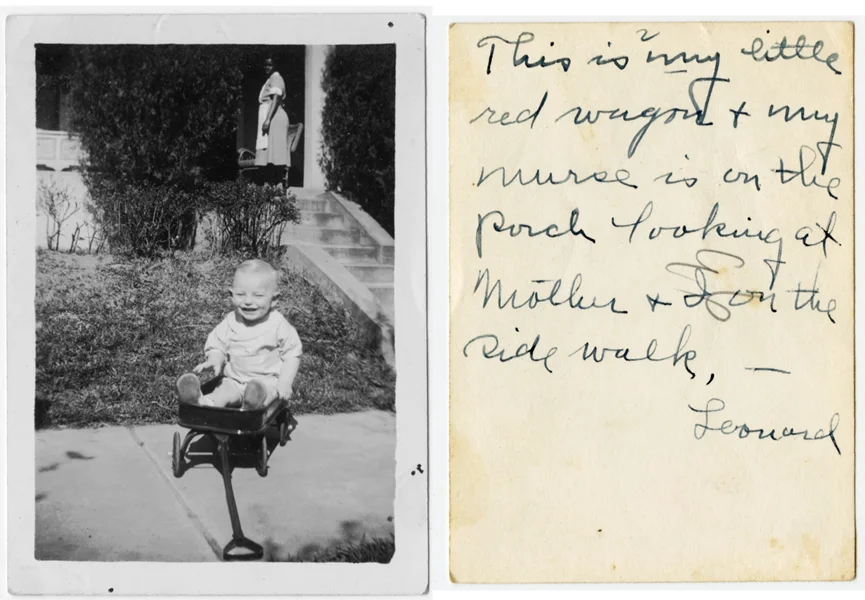 This is my little
red wagon + my
nurse is on the
porch looking at
Mother + I on the
side walk, —
Leonard